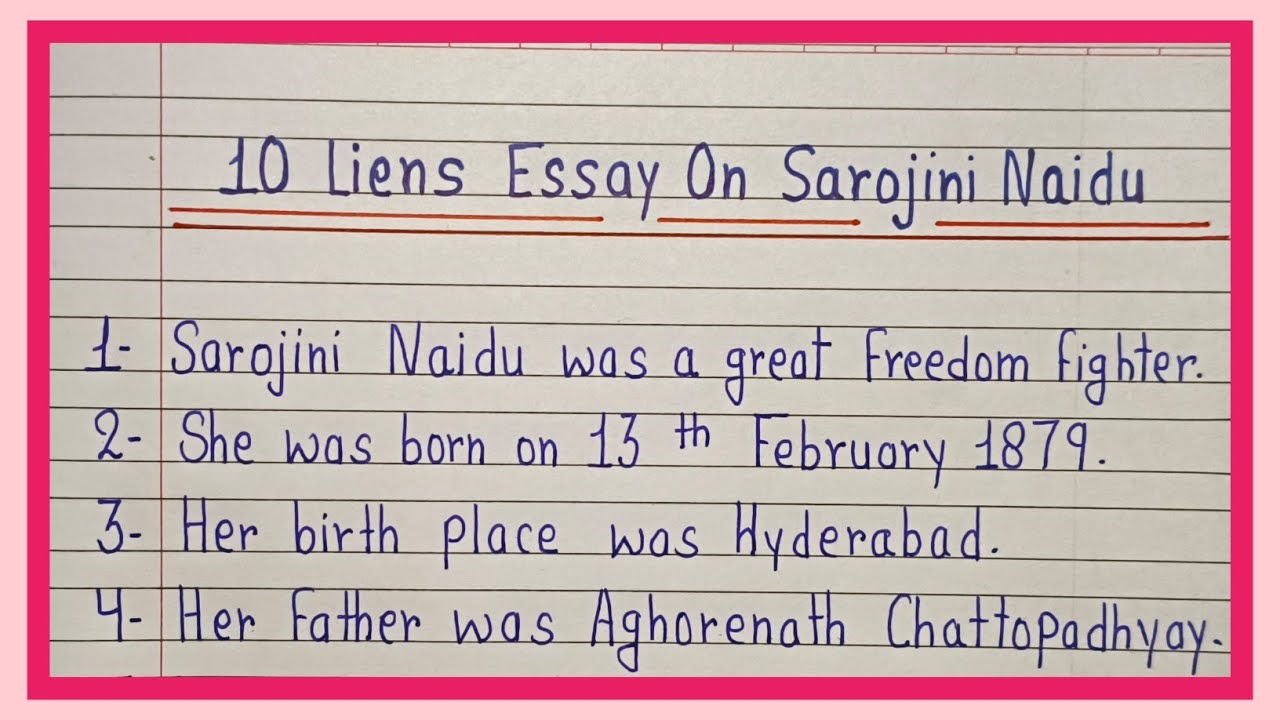 10 Liens Essay On Sarojini Naidu
1- Sarojini Naidu was a great Freedom fighter.
2- She was born on 13 th February 1879.
3- Her birth place was Hyderabad.
4- Her Father was Aghorenath Chattopadhyay.